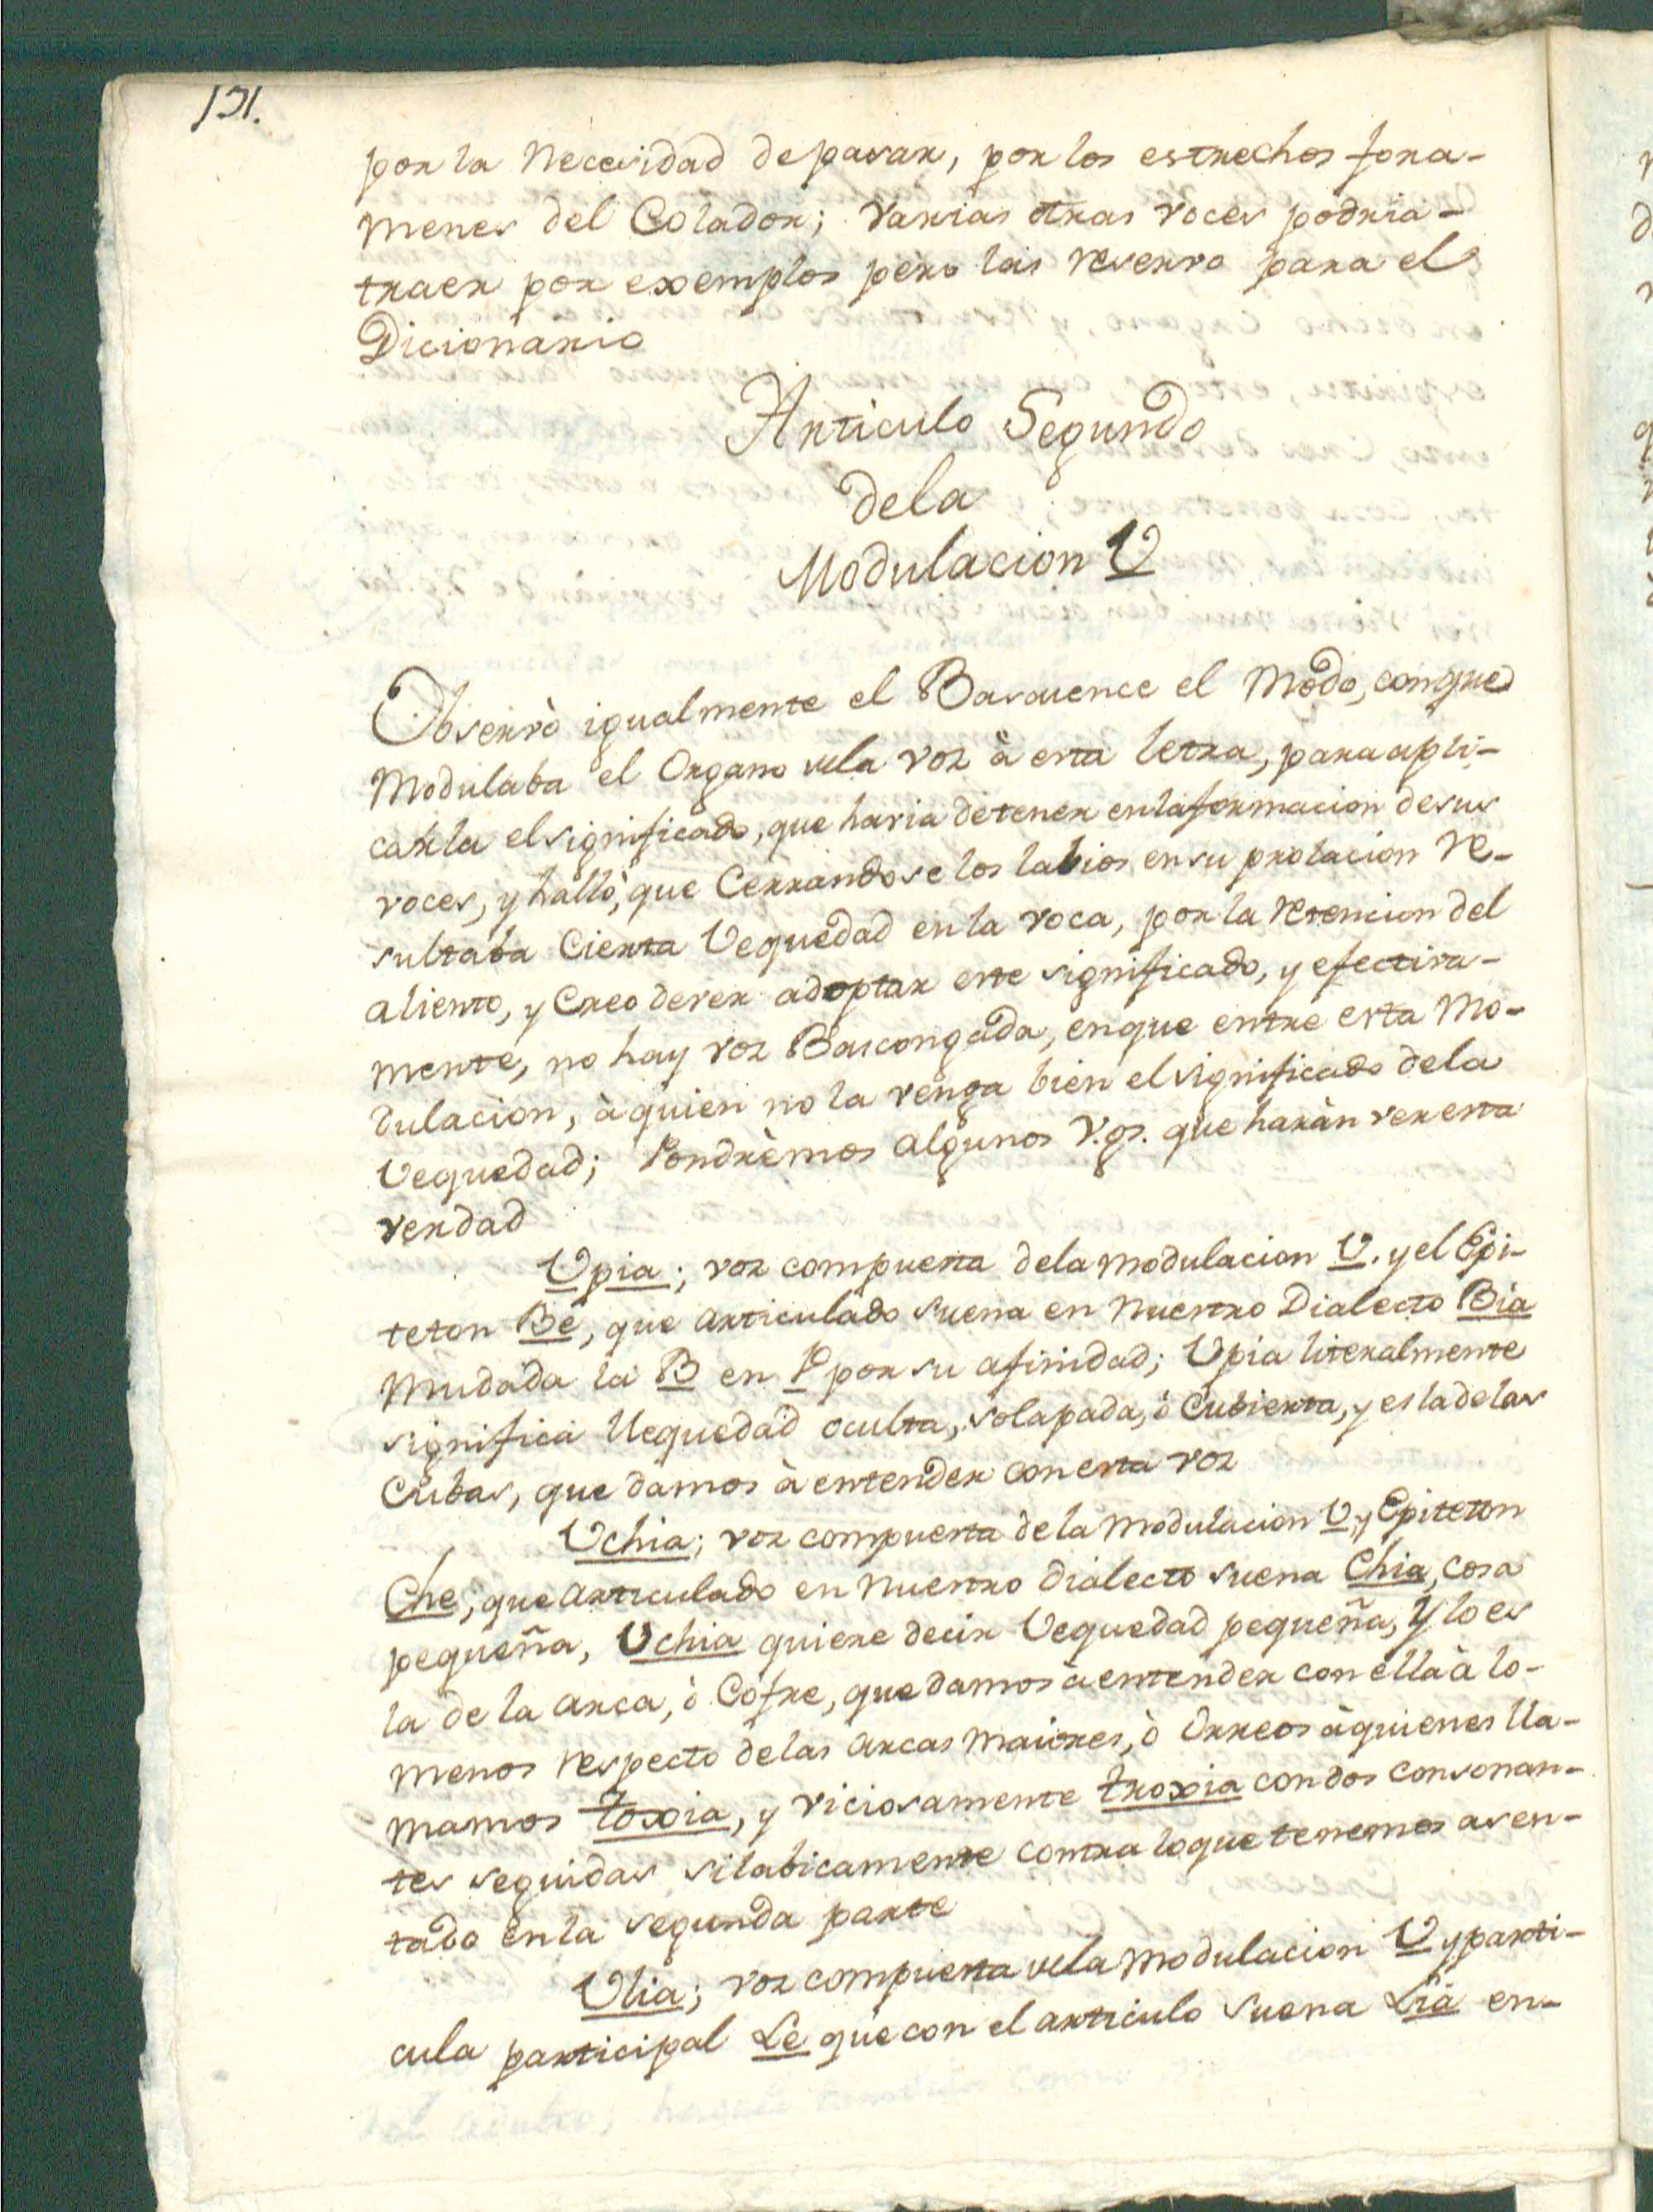 151.
por la Necesidad de pasar, por los estrechos fora-
menes del Colador; varias otras voces podria-
traer por exemplos pero las reservo para el
Dicionario
Articulo Segundo
dela
Modulacion U
Observò igualmente el Bascuence el Modo, conque
Modulaba el Organo dela voz à esta letra, para apli-
carla elsignificado, que haria detener enlaformacion desus
voces, y hallò, que Cerrandose los labios ensu prolacion re-
sultaba Cierta Uequedad en la voca, por la retencion del
aliento, y Creo dever adoptar este significado, y efectiva-
mente, no hay voz Bascongada, enque entre esta Mo-
dulacion, à quien no la venga bien elsignificado dela
Uequedad; Pondrèmos algunos V.gs. que haràn ver esta
verdad
Upia; voz compuesta dela modulacion U. y el Epi-
teton Be, que articulado suena en Nuestro Dialecto Bia
Mudada la B en P por su afinidad; Upia literalmente
significa Uequedad oculta, solapada, ò Cubierta, y es ladelas
Cubas, que damos à entender con esta voz
Uchia; voz compuesta de la modulacion U, y Epiteton
Che, que articulado en Nuestro dialecto suena Chia, cosa
pequeña, Uchia quiere decir Uequedad pequeña, Y lo es
la de la arca, ò Cofre, que damos à entender con ella à lo-
menos respecto delas arcas maiores, ò Orreos àquienes lla-
mamos toxia, y viciosamente troxia con dos consonan-
tes seguidas silabicamente contra loque tenemos asen-
tado en la segunda parte
Ulia; voz compuesta dela modulacion U y parti-
cula participal Le que con el articulo suena Lia en-